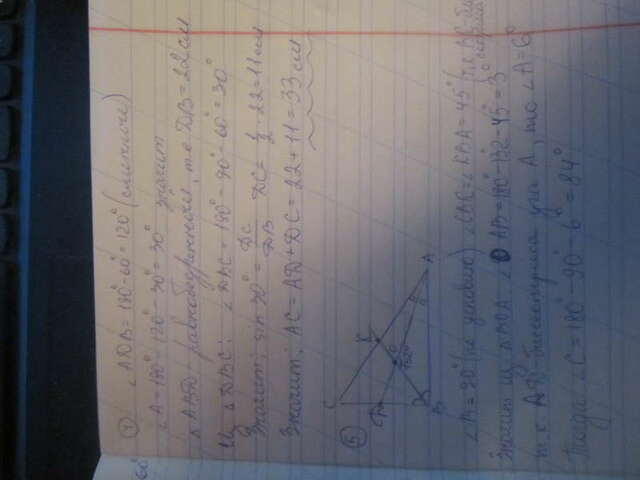 ④ ∠ADB = 180° - 60° = 120° (смежные)
∠A = 180° - 120° - 30° = 30° значит
△ABD - равнобедренный, т.е. DB = 22 см
Из △DBC: ∠DBC = 180° - 90° - 60° = 30°
Значит: sin 30° = DC/DB DC = 1/2 · 22 = 11 см
Значит: AC = AD + DC = 22 + 11 = 33 см
60°
⑤
C
K
D
O
132°
B
A
∠B = 90° (по условию) ∠CBK = ∠KBA = 45° (т.к.
Значит из △BOA ∠OAB = 180° - 132 - 45° = 3°
т.к. AD - биссектриса угла A, то ∠A = 6°
Тогда ∠C = 180° - 90° - 6° = 84°